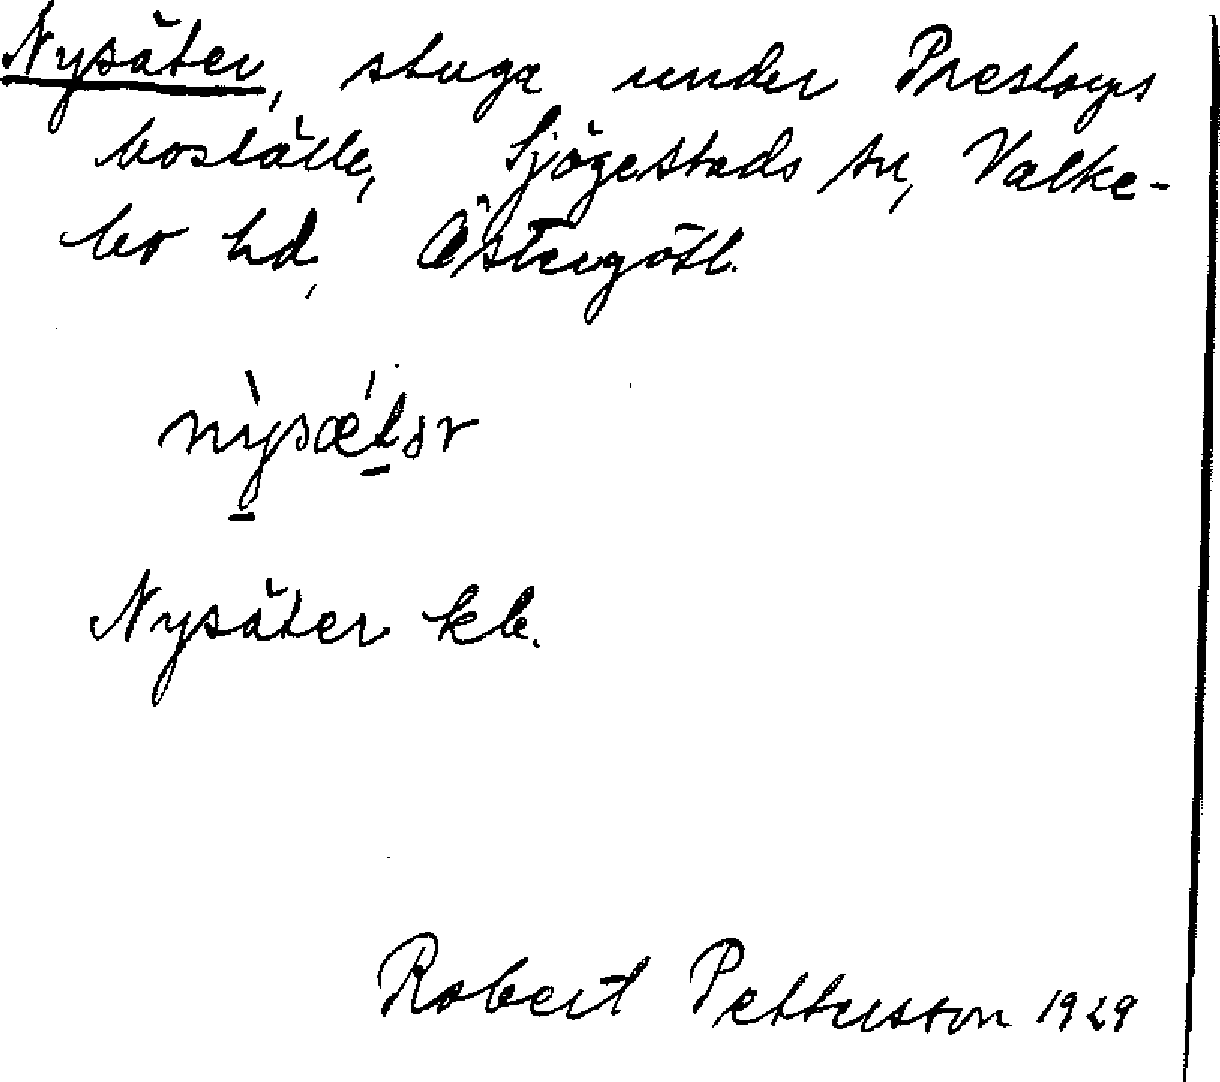 Nysäter, stuga under Prestorps
boställe, Sjögestads sn, Valke-
bo hd, Östergötl.
nỳsǽtər
Nysäter kb.
Robert Pettersson 1929